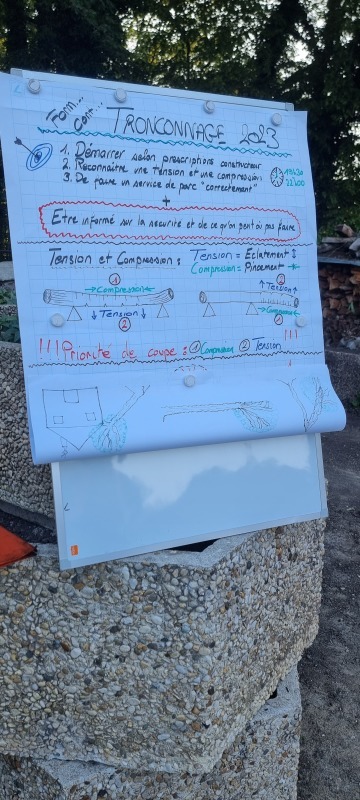 Form... Cont...
TRONCONNAGE 2023
1. Démarrer selon prescriptions constructeur
2. Reconnaître une tension et une compression
3. De faire un service de parc "correctement"
18h30
22h00
+
Etre informé sur la sécurité et de ce qu'on peut où pas faire
Tension et Compression : Tension = Eclatement
Compression = Pincement
1
Compression
Tension
2
1
Tension
Compression
2
!!! Priorité de coupe : 1 Compression 2 Tension !!!